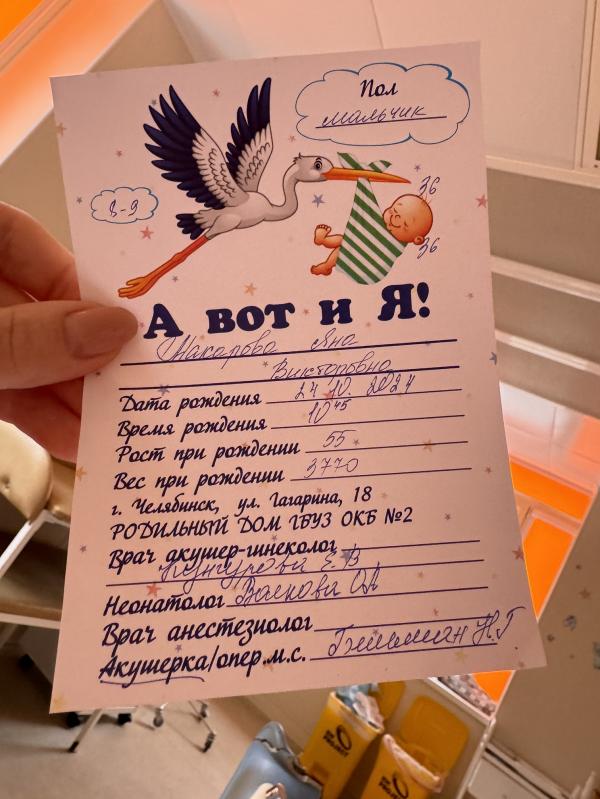 Пол
мальчик
8-9
36
36
А вот и Я!
Макарова Яна
Викторовна
Дата рождения 24 10. 2024
Время рождения 10 45
Рост при рождении 55
Вес при рождении 3770
г. Челябинск, ул. Гагарина, 18
РОДИЛЬНЫЙ ДОМ ГБУЗ ОКБ №2
Врач акушер-гинеколог
Е В
Неонатолог ОА
Врач анестезиолог
Акушерка/опер.м.с. Н.Г